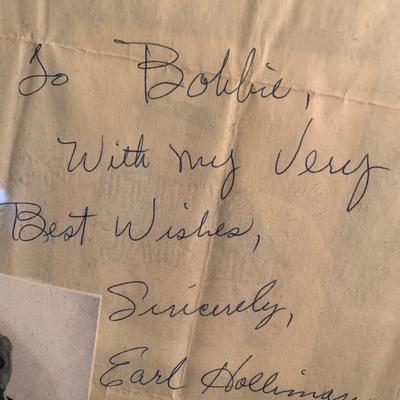 To Bobbie,
With my Very
Best Wishes,
Sincerely,
Earl Holliman